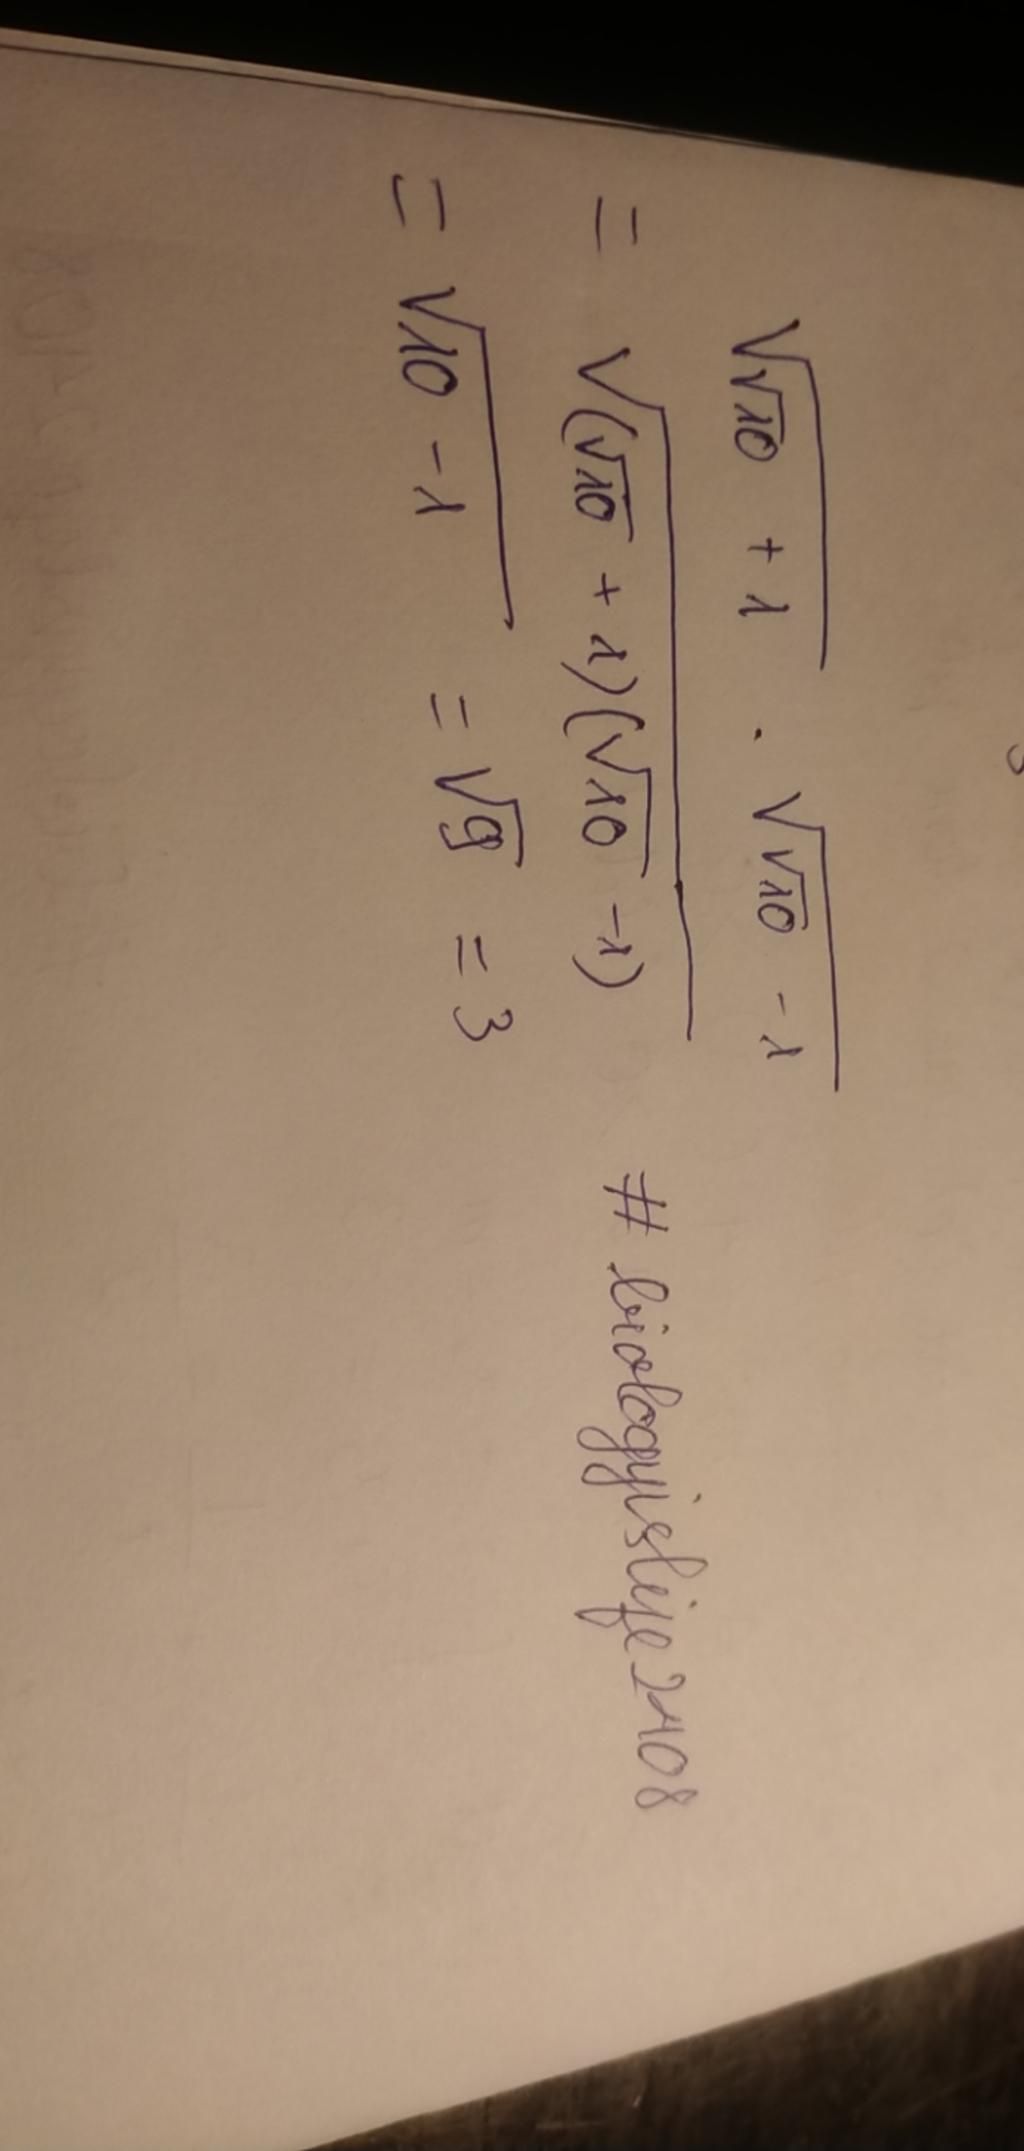 √(√10 + 1) · √(√10 - 1)
= √((√10 + 1)(√10 - 1)) # biologyislife2408
= √(10 - 1) = √9 = 3